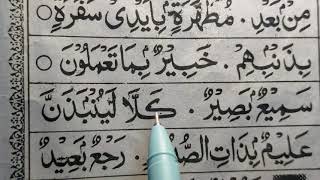 مِنْۢ بَعْدِ . مُطَهَّرَةٍۭ بِاَيْدِىْ سَفَرَةٍ ○
بِذَنْۢبِهِمْ . خَبِيْرٌۢ بِمَا تَعْمَلُوْنَ ○
سَمِيْعٌۢ بَصِيْرٌ . كَلَّا لَيُنْۢبَذَنَّ
عَلِيْمٌۢ بِذَاتِ . رَجْعٌۢ بَعِيْدٌ